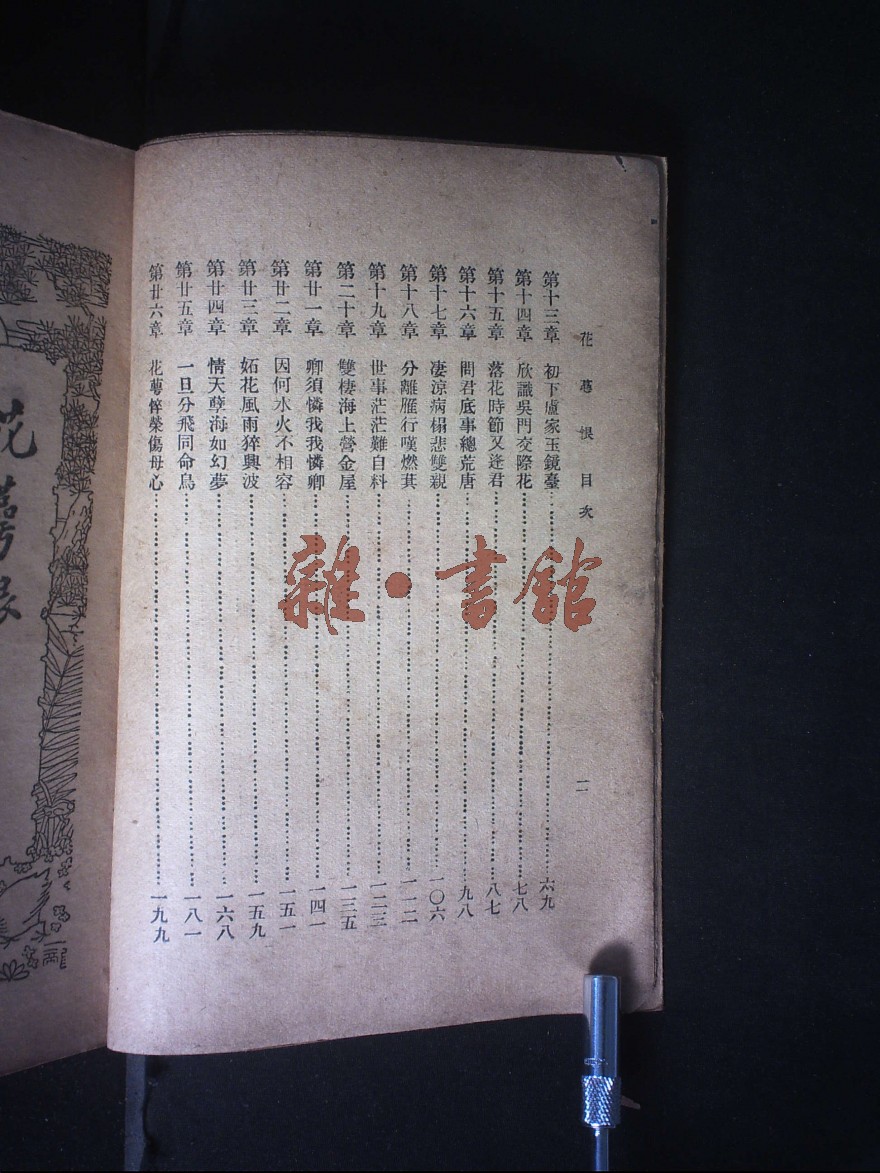 花萼恨目次
二
第十三章　初下盧家玉鏡臺……六九
第十四章　欣識吳門交際花……七八
第十五章　落花時節又逢君……八七
第十六章　問君底事總荒唐……九八
第十七章　凄涼病榻悲雙親……一〇六
第十八章　分離雁行嘆燃萁……一一二
第十九章　世事茫茫難自料……一二三
第二十章　雙棲海上營金屋……一三五
第廿一章　卿須憐我我憐卿……一四一
第廿二章　因何水火不相容……一五一
第廿三章　妬花風雨猝興波……一五九
第廿四章　情天孽海如幻夢……一六八
第廿五章　一旦分飛同命鳥……一八一
第廿六章　花萼悴榮傷母心……一九九
花萼恨
雜·書館